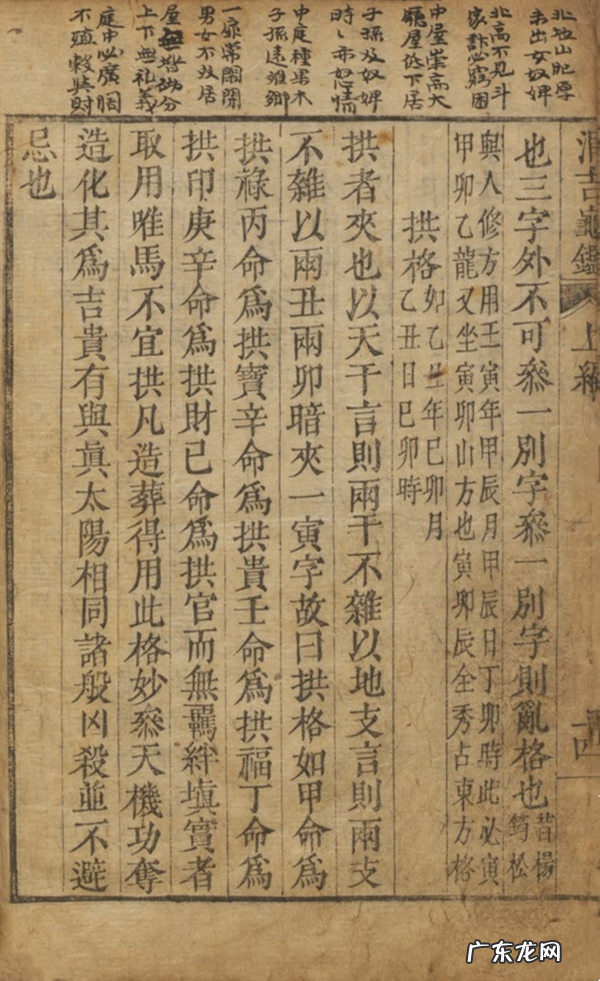 北坡山肥厚
未出女奴婢
北高不見斗
家計必窮困
中屋崇高大
廳屋低下居
子孫及奴婢
時時亦怠惰
中庭種果木
子孫遠離鄉
一扉常關閉
男女不放居
屋無階砌分
上下無礼義
庭中必廣闊
不殖穀與財
消吉龜鑑
上編
十四
也三字外不可叅一別字叅一別字則亂格也昔楊
筠松
與人修方用壬寅年甲辰月甲辰日丁卯時此必寅
甲卯乙龍又坐寅卯山方也寅卯辰全秀占東方格
拱格如乙丑年己卯月
乙丑日己卯時
拱者夾也以天干言則兩干不雜以地支言則兩支
不雜以兩丑兩卯暗夾一寅字故曰拱格如甲命爲
拱祿丙命爲拱寶辛命爲拱貴壬命爲拱福丁命爲
拱印庚辛命爲拱財己命爲拱官而無羈絆塡實者
取用唯馬不宜拱凡造葬得用此格妙叅天機功奪
造化其爲吉貴有與眞太陽相同諸般凶殺並不避
忌也
广东龙网